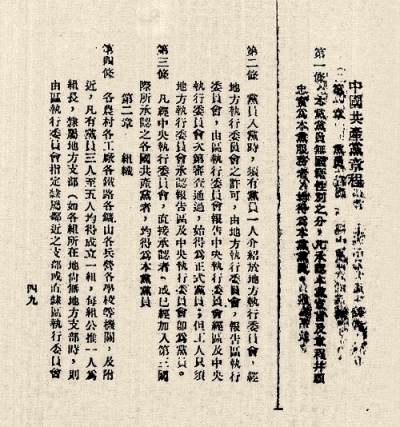 中國共產黨章程
第一章 黨員
第一條 本黨黨員無國籍性別之分,凡承認本黨宣言及章程并願
忠實爲本黨服務者,均得爲本黨黨員。
第二條 黨員入黨時,須有黨員一人介紹於地方執行委員會,經
地方執行委員會之許可,由地方執行委員會,報告區執行
委員會,由區執行委員會報告中央執行委員會經區及中央
執行委員會次第審查通過,始得爲正式黨員;但工人只須
地方執行委員會承認報告區及中央執行委員會卽爲黨員。
第三條 凡經中央執行委員會,直接承認者,或已經加入第三國
際所承認之各國共產黨者,均得爲本黨黨員
第二章 組織
第四條 各農村各工廠各鐵路各鑛山各兵營各學校等機關,及附
近,凡有黨員三人至五人均得成立一組,每組公推一人爲
組長,隸屬地方支部(如各組所在地尚無地方支部時,則
由區執行委員會指定隸屬鄰近之支部或直隸區執行委員會
四九